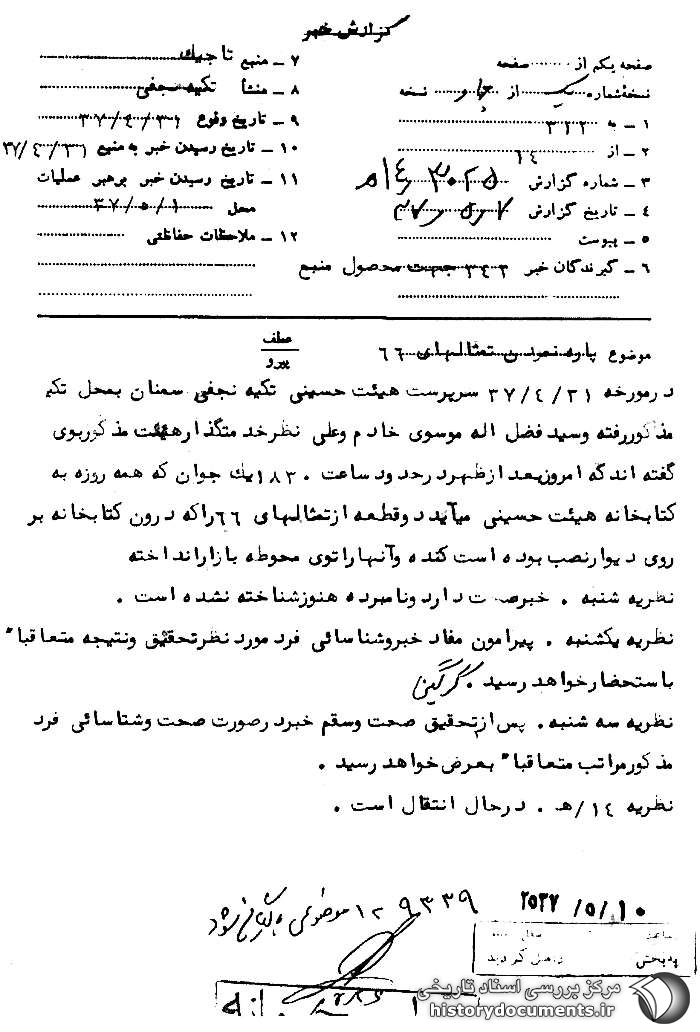 گزارش خبر
صفحه یکم از ........ صفحه
نسخه شماره یک از چهار نسخه
۱ ـ به ۳۱۲
۲ ـ از ۱٤
۳ ـ شماره گزارش
٤ ـ تاریخ گزارش
۵ ـ پیوست
۶ ـ گیرندگان خبر ۳٤۳ جهت محصول منبع
۷ ـ منبع تاجیك
۸ ـ منشأ تکیه نجفی
۹ ـ تاریخ وقوع ۳۷/٤/۳۱
۱۰ ـ تاریخ رسیدن خبر به منبع ۳۷/٤/۳۱
۱۱ ـ تاریخ رسیدن خبر برهبر عملیات
محل ۳۷/۵/۱
۱۲ ـ ملاحظات حفاظتی
موضوع پاره نمودن تمثالهای ۶۶
عطف
پیرو
درمورخه ۳۷/٤/۳۱ سرپرست هیئت حسینی تکیه نجفی سمنان بمحل تکیه
مذکوررفته وسید فضل اله موسوی خادم وعلی نظرخدمتگذارهیئت مذکوربوی
گفته اند که امروزبعد ازظهردرحدود ساعت ۱۸۳۰ یك جوان که همه روزه به
کتابخانه هیئت حسینی میآید دوقطعه ازتمثالهای ۶۶ راکه درون کتابخانه بر
روی دیوارنصب بوده است کنده وآنهاراتوی محوطه بازارانداخته
نظریه شنبه . خبرصحت دارد ونامبرده هنوزشناخته نشده است .
نظریه یکشنبه . پیرامون مفاد خبروشناسائی فرد مورد نظرتحقیق ونتیجه متعاقبا"
باستحضارخواهد رسید . گرگین
نظریه سه شنبه . پس ازتحقیق صحت وسقم خبردرصورت صحت وشناسائی فرد
مذکورمراتب متعاقبا" بعرض خواهد رسید .
نظریه ۱٤/ه . درحال انتقال است .
۲۵۳۷/۵/۱۰
۹۳۳۹
مرکز بررسی اسناد تاریخی
historydocuments.ir